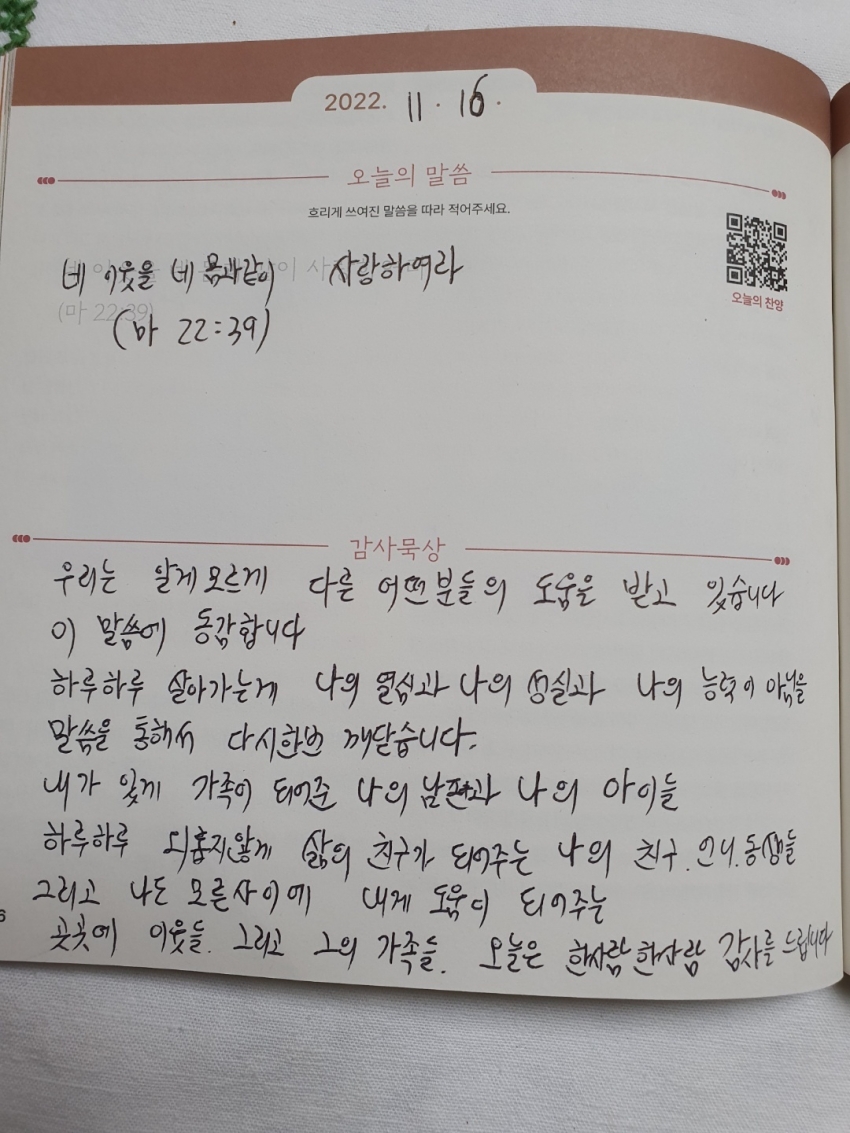 2022. 11. 16.
오늘의 말씀
흐리게 쓰여진 말씀을 따라 적어주세요.
네 이웃을 네 몸과같이 사랑하여라
(마 22:39)
(마 22:39)
오늘의 찬양
감사묵상
우리는 알게모르게 다른 어떤분들의 도움을 받고 있습니다
이 말씀에 동감합니다
하루하루 살아가는게 나의 열심과 나의 성실과 나의 능력이 아님을
말씀을 통해서 다시한번 깨닫습니다.
내가 있게 가족이 되어준 나의 남편과 나의 아이들
하루하루 외롭지않게 삶의 친구가 되어주는 나의 친구. 언니.동생들
그리고 나도 모른사이에 내게 도움이 되어주는
곳곳에 이웃들. 그리고 그의 가족들. 오늘은 한사람한사람 감사를 드립니다
6